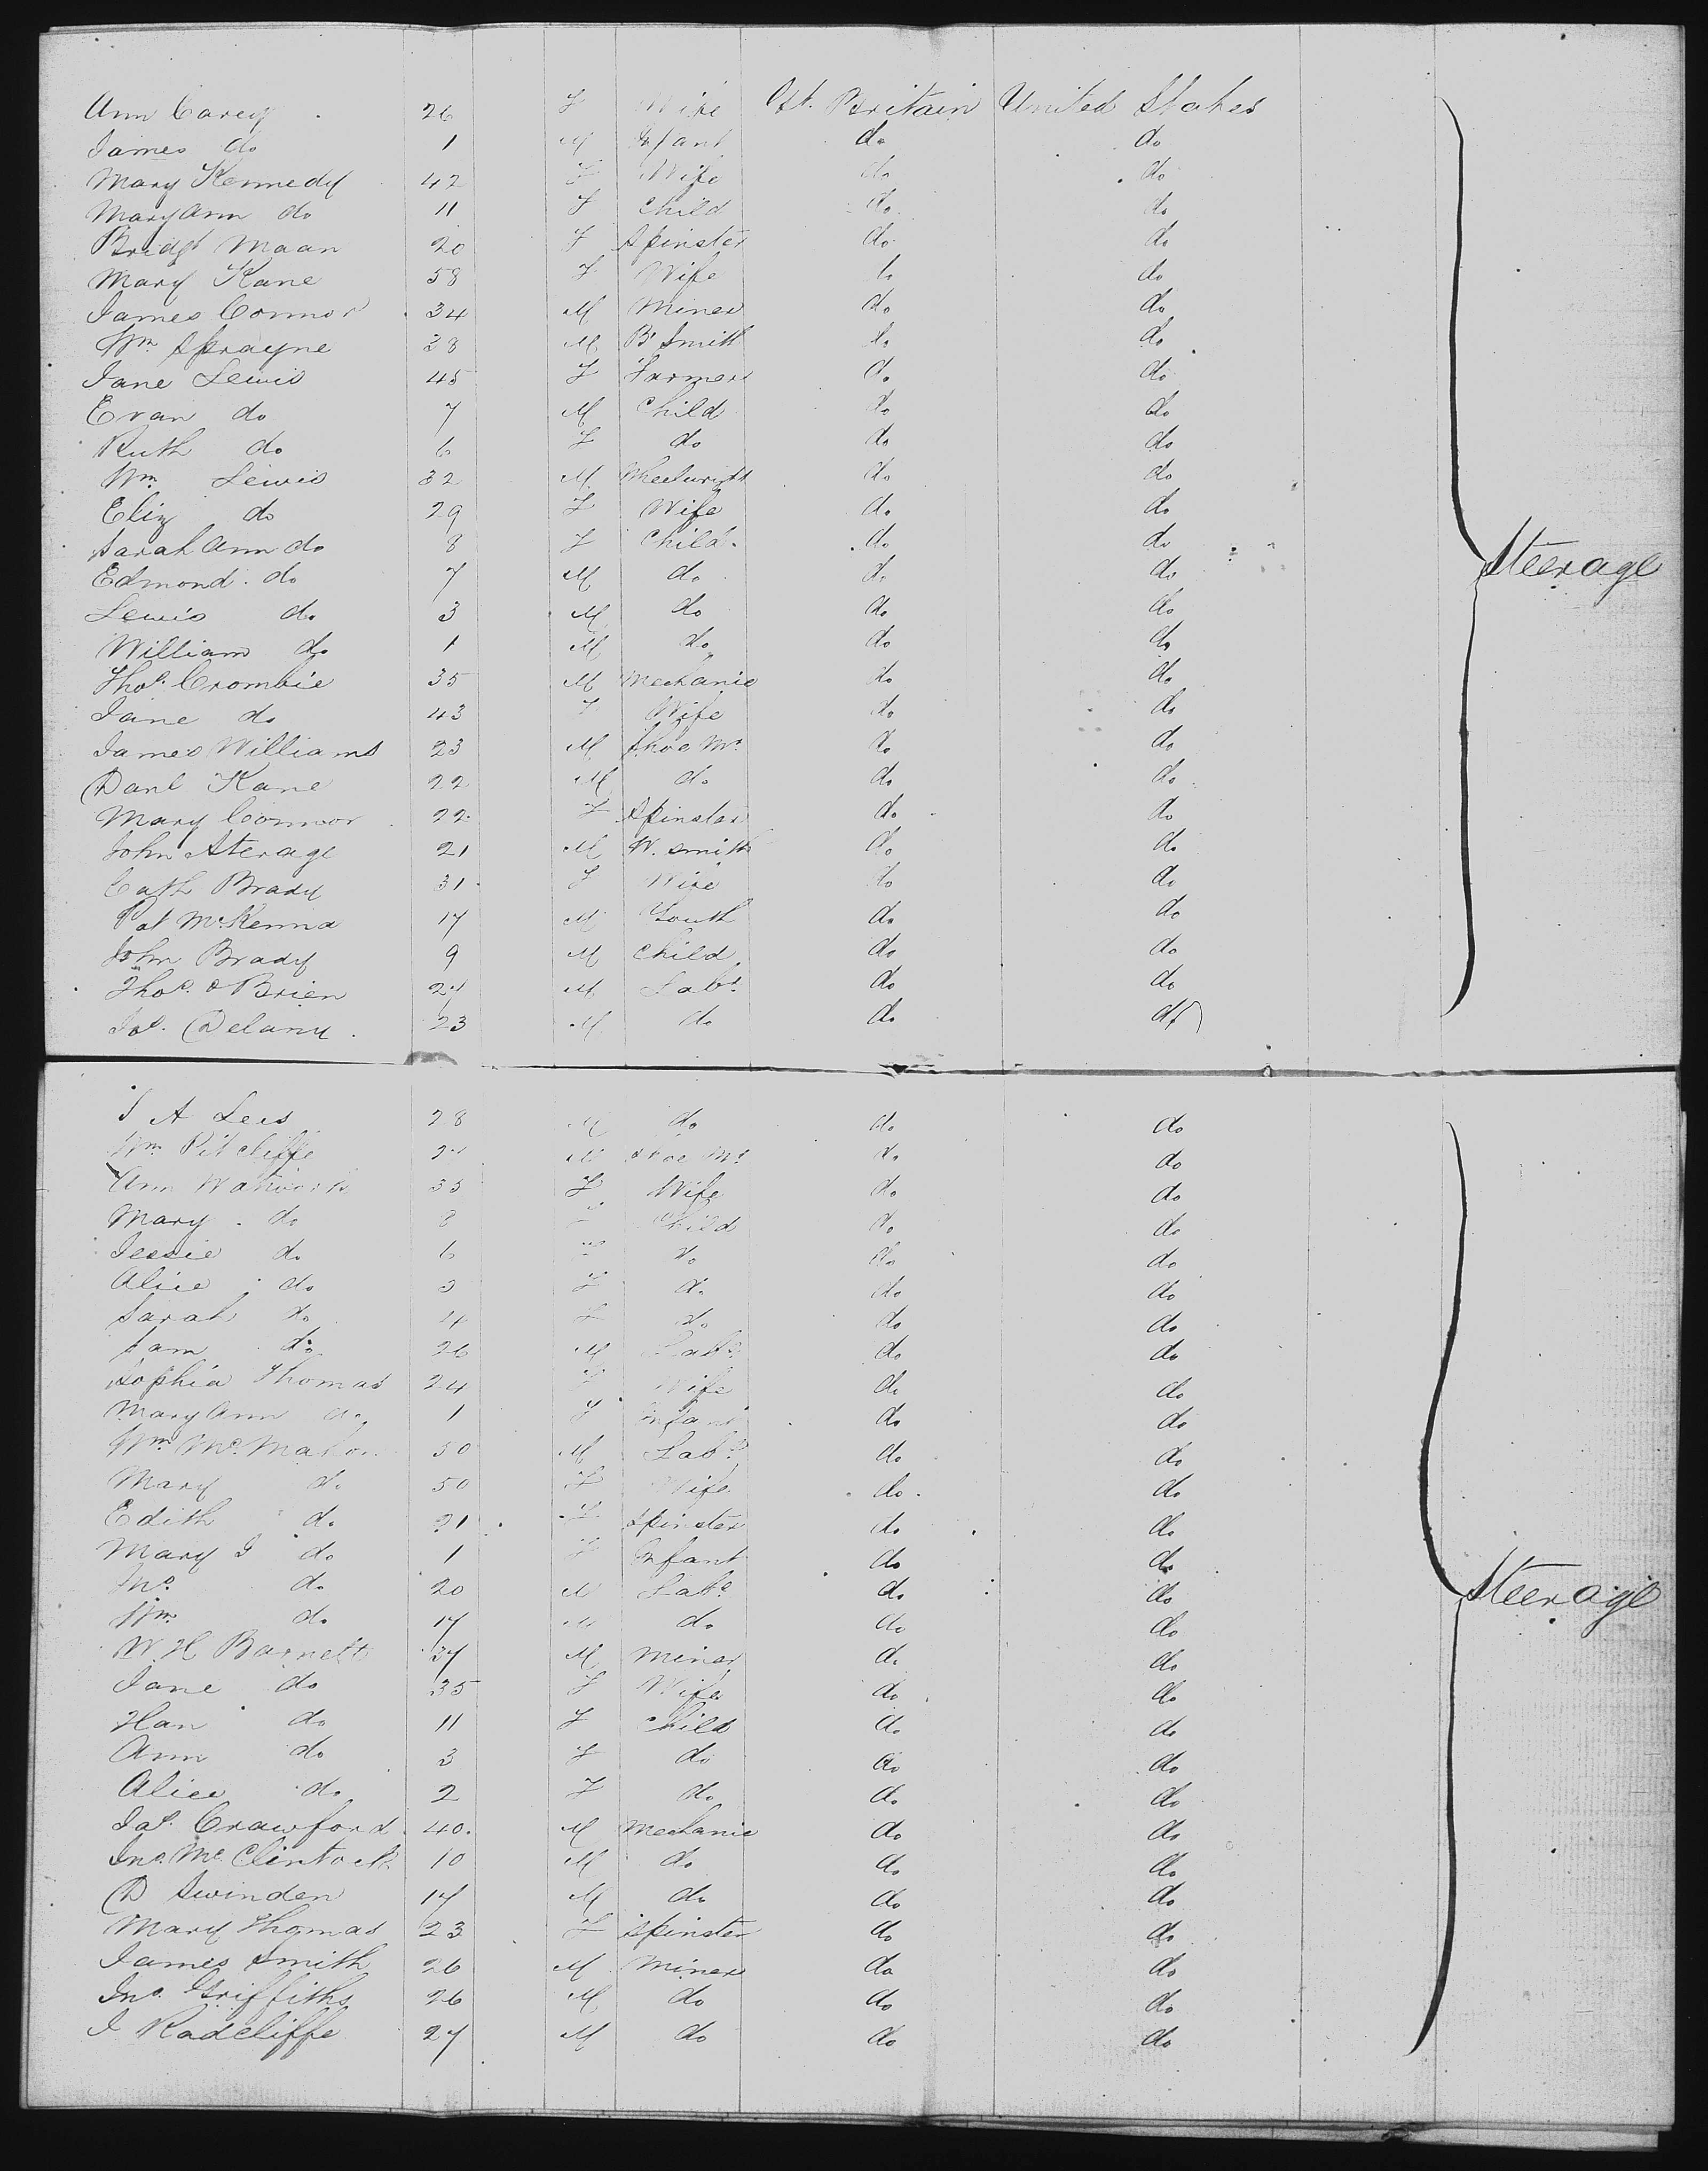 Ann Carey 26 F Wife Gt. Britain United States
James do 1 M Infant do do
Mary Kennedy 42 F Wife do do
Mary Ann do 11 F Child do do
Bridgt Maan 20 F Spinster do do
Mary Kane 58 F Wife do do
James Connor 34 M Miner do do
Wm Sprayne 38 M B Smith do do
Jane Lewis 45 F Farmer do do
Evan do 7 M Child do do
Ruth do 6 F do do do
Wm Lewis 32 M Wheelwright do do
Eliz do 29 F Wife do do
Sarah Ann do 8 F Child do do
Steerage
Edmond do 7 M do do do
Lewis do 3 M do do do
William do 1 M do do do
Thos. Crombie 35 M Mechanic do do
Jane do 43 F Wife do do
James Williams 23 M Shoe Mr do do
Danl Kane 22 M do do do
Mary Connor 22 F Spinster do do
John Sterage 21 M W. Smith do do
Cath Brady 31 F Wife do do
Pat McKenna 17 M Youth do do
John Brady 9 M Child do do
Thos. OBrien 21 M Labr do do
Jas. Delany 23 M do do do
J A Lees 28 M do do do
Wm Pitcliffe M Shoe Mr do do
Ann 35 F Wife do do
Mary do 8 F Child do do
Jessie do 6 do do do
Alice do F do do do
Sarah do 4 F do do do
Sam do 26 M Labr do do
Sophia Thomas 24 F Wife do do
Mary Ann do 1 F Infant do do
Wm McMahon 50 M Labr do do
Mary do 50 F Wife do do
Edith do 21 F Spinster do do
Mary J do 1 F Infant do do
Jno. do 20 M Labr do do
Steerage
Wm do 17 M do do do
W H Barnett 37 M Miner do do
Jane do 35 F Wife do do
Han do 11 F Child do do
Ann do 3 F do do do
Alice do 2 F do do do
Jas. Crawford 40 M Mechanic do do
Jno. McClintock 10 M do do do
D Swinden 17 M do do do
Mary Thomas 23 F Spinster do do
James Smith 26 M Miner do do
Jno. Griffiths 26 M do do do
J Radcliffe 27 M do do do